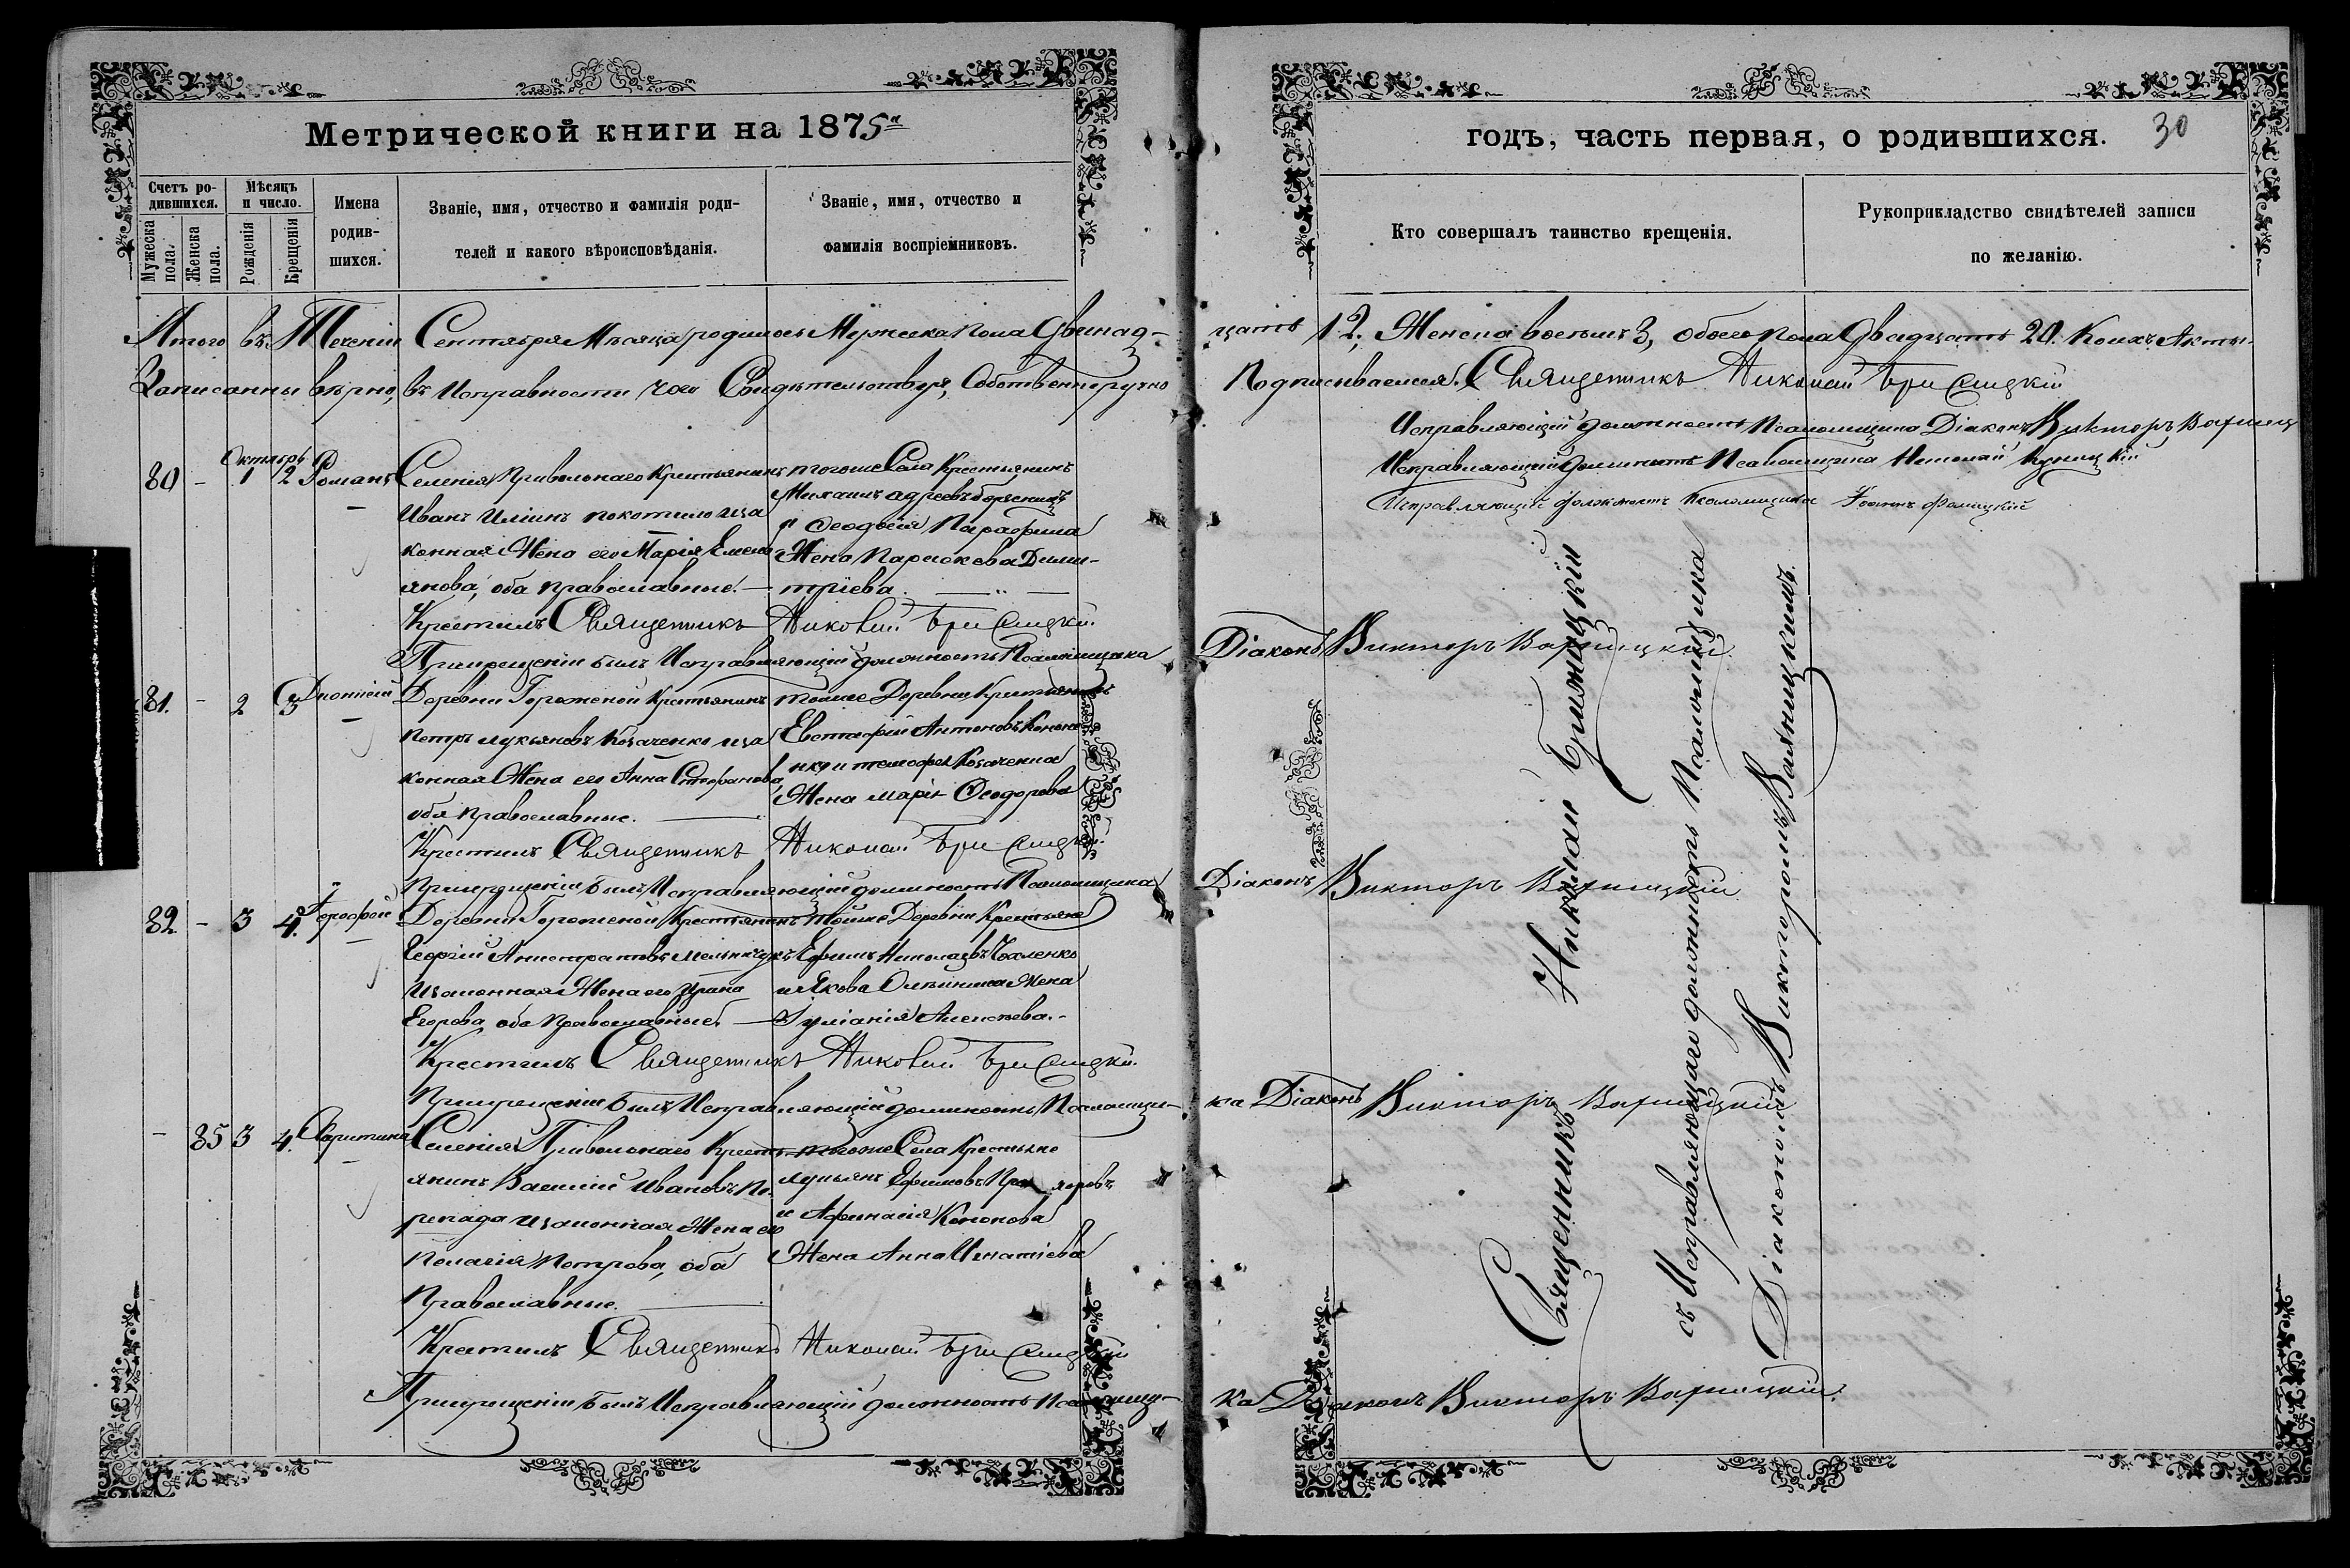 Метрической книги на 1875й
годъ, часть первая, о родившихся.
30
Счетъ ро-
дившихся.
Мужеска
пола.
Женска
пола.
Мѣсяцъ
и число.
Рожденія
Крещенія
Имена
родив-
шихся.
Званіе, имя, отчество и фамилія роди-
телей и какого вѣроисповѣданія.
Званіе, имя, отчество и
фамилія воспріемниковъ.
Кто совершалъ таинство крещенія.
Рукоприкладство свидѣтелей записи
по желанію.
Итого въ Теченіи Сентября Мѣсяца родилось Мужеска Пола Двѣнад-
цать 12, Женска восемь, обоего пола Двадцать 20. Коихъ Акты
Записанны вѣрно, въ Исправности чего Свидѣтельствуя, Собственноручно
Подписываемся. Священникъ Николай
Исправляющій должность Псаломщика Діаконъ Викторъ
Исправляющій должность Псаломщика Николай
Исправляющій должность Псаломщика
Октябрь
80 - 1 2 Романъ
Селенія Привольнаго Крестьянинъ
Иванъ Иліинъ Покотило и за
конная Жена его Марія Емель
янова, оба православные.
тогоже Села Крестьянинъ
Михаилъ
и Ѳеодосія
Жена Дими-
тріева
Крестилъ Священникъ Николай
При крещеніи былъ Исправляющій должность Псаломщика
Діаконъ Викторъ
81. - 2 3 Діонисій
Деревни Горожоной Крестьянинъ
Петръ Лукьяновъ Козаченко и за
конная Жена его Анна Стефанова,
оба православные.
тойже Деревни Крестьянинъ
Евстафій Антоновъ Конон
Козаченка
Жена Марія Ѳеодорова
Крестилъ Священникъ Николай
При крещеніи былъ Исправляющій должность Псаломщика
Діаконъ Викторъ
82. - 3 4. Іерофей
Деревни Горожоной Крестьянинъ
Георгій Мельничукъ
и законная Жена его
Егорова, оба Православные.
тойже Деревни Крестьяне
Ефимъ Николаевъ
и Якова Жена
Іуліанія Алексѣева.
Крестилъ Священникъ Николай
При крещеніи былъ Исправляющій должность Псаломщи-
ка Діаконъ Викторъ
- 85 3 4. Харитина
Селенія Привольнаго Кресть-
янинъ Василій Ивановъ Пе-
репада и законная Жена его
Пелагія Петрова, оба
Православные.
тогоже Села Крестьяне
Лукьянъ Ефимовъ
и Афанасія Кононова
Жена Анна Игнатіева
Крестилъ Священникъ Николай
При крещеніи былъ Исправляющій должность Псаломщи-
ка Діаконъ Викторъ
Священникъ Николай
съ Исправляющаго должность Псаломщика
Діакономъ Викторомъ